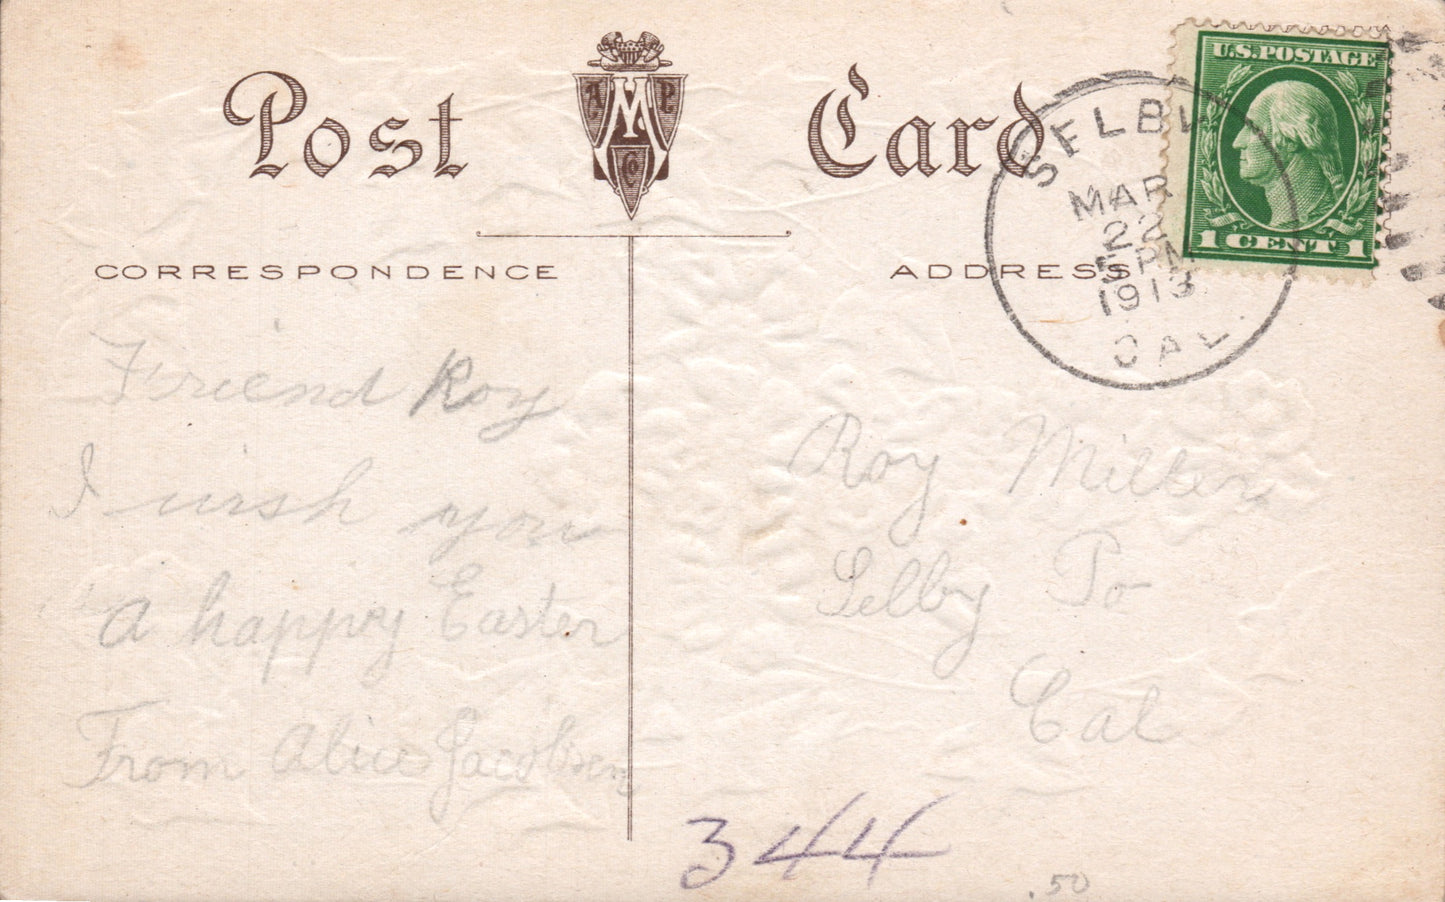 Post Card
A M P Co
U.S. POSTAGE
1 CENT 1
SELBY
MAR
22
PM
1913
CAL.
CORRESPONDENCE
ADDRESS
Friend Roy
I wish you
a happy Easter
From Alice Jacobsen
Roy Miller
Selby Po
Cal
344
.50